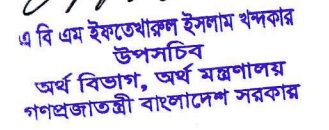 এ বি এম ইফতেখারুল ইসলাম খন্দকার
উপসচিব
অর্থ বিভাগ, অর্থ মন্ত্রণালয়
গণপ্রজাতন্ত্রী বাংলাদেশ সরকার